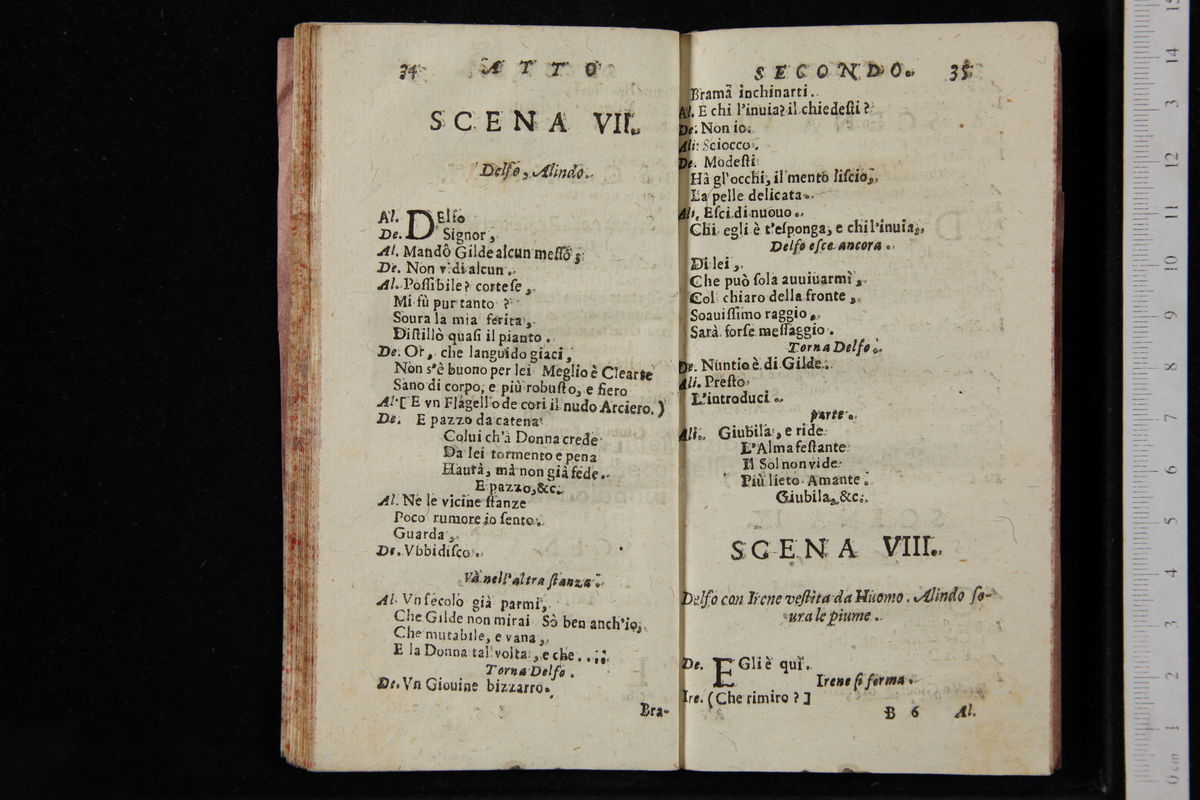 34 ATTO
SCENA VII.
Delfo, Alindo.
Al. DElfo
De. Signor,
Al. Mandò Gilde alcun messo;
De. Non vidi alcun.
Al. Possibile? cortese,
Mi fù pur tanto?
Soura la mia ferita,
Distillò quasi il pianto.
De. Or, che languido giaci,
Non s'è buono per lei Meglio è Clearte
Sano di corpo, e più robusto, e fiero
Al. [E vn Flagello de cori il nudo Arciero.)
De. E pazzo da catena
Colui ch'à Donna crede
Da lei tormento e pena
Haurà, mà non già fede.
E pazzo, &c.
Al. Ne le vicine stanze
Poco rumore io sento.
Guarda,
De. Vbbidisco.
Và nell'altra stanza.
Al. Vn secolo già parmi,
Che Gilde non mirai Sò ben anch'io,
Che mutabile, e vana,
E la Donna tal volta, e che....
Torna Delfo.
De. Vn Giouine bizzarro.
Bra-
SECONDO. 35
Bramã inchinarti.
Al. E chi l'inuia? il chiedesti?
De. Non io.
Ali. Sciocco.
De. Modesti
Hà gl'occhi, il mento liscio,
La pelle delicata.
Ali. Esci di nuouo.
Chi egli è t'esponga, e chi l'inuia,
Delfo esce ancora.
Di lei,
Che può sola auuiuarmi,
Col chiaro della fronte,
Soauissimo raggio,
Sarà forse messaggio.
Torna Delfo.
De. Nuntio è di Gilde.
Ali. Presto
L'introduci.
parte.
Ali. Giubila, e ride
L'Alma festante
Il Sol non vide
Più lieto Amante.
Giubila, &c.
SCENA VIII.
Delfo con Irene vestita da Huomo. Alindo so-
ura le piume.
De. EGli è qui.
Irene si ferma.
Ire. (Che rimiro?]
B 6 Al.